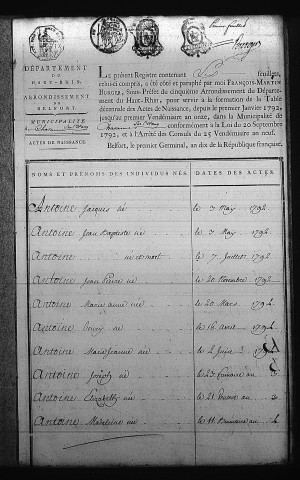 DÉPARTEMENT
DU
HAUT-RHIN.
ARRONDISSEMENT
DE
BELFORT.
MUNICIPALITÉ
ACTES DE NAISSANCE
LE présent Registre contenant feuilles,
celui-ci compris, a été coté et paraphé par moi FRANÇOIS-MARTIN
BURGER, Sous-Préfet du cinquième Arrondissement du Département
du Haut-Rhin, pour servir à la formation de la Table
décennale des Actes de Naissance, depuis le premier Janvier 1792,
jusqu'au premier Vendémiaire an onze, dans la Municipalité de
conformément à la Loi du 20 Septembre
1792, et à l'Arrêté des Consuls du 25 Vendémiaire an neuf.
Belfort, le premier Germinal, an dix de la République française.
NOMS ET PRÉNOMS DES INDIVIDUS NÉS. DATES DES ACTES.
Antoine Jacques né le 3 May 1792
Antoine Jean Baptiste né le 3 May 1792
Antoine né et mort le 7 Juillet 1792
Antoine Jean Pierre né le 20 Novembre 1792
Antoine Marie anne née le 20 Mars
Antoine né le 16 Avril
Antoine Marie Jeanne née le 2 Juin
Antoine Joseph né le 23
Antoine Elizabeth née le 21
Antoine Madeleine née le 11 Brumaire an